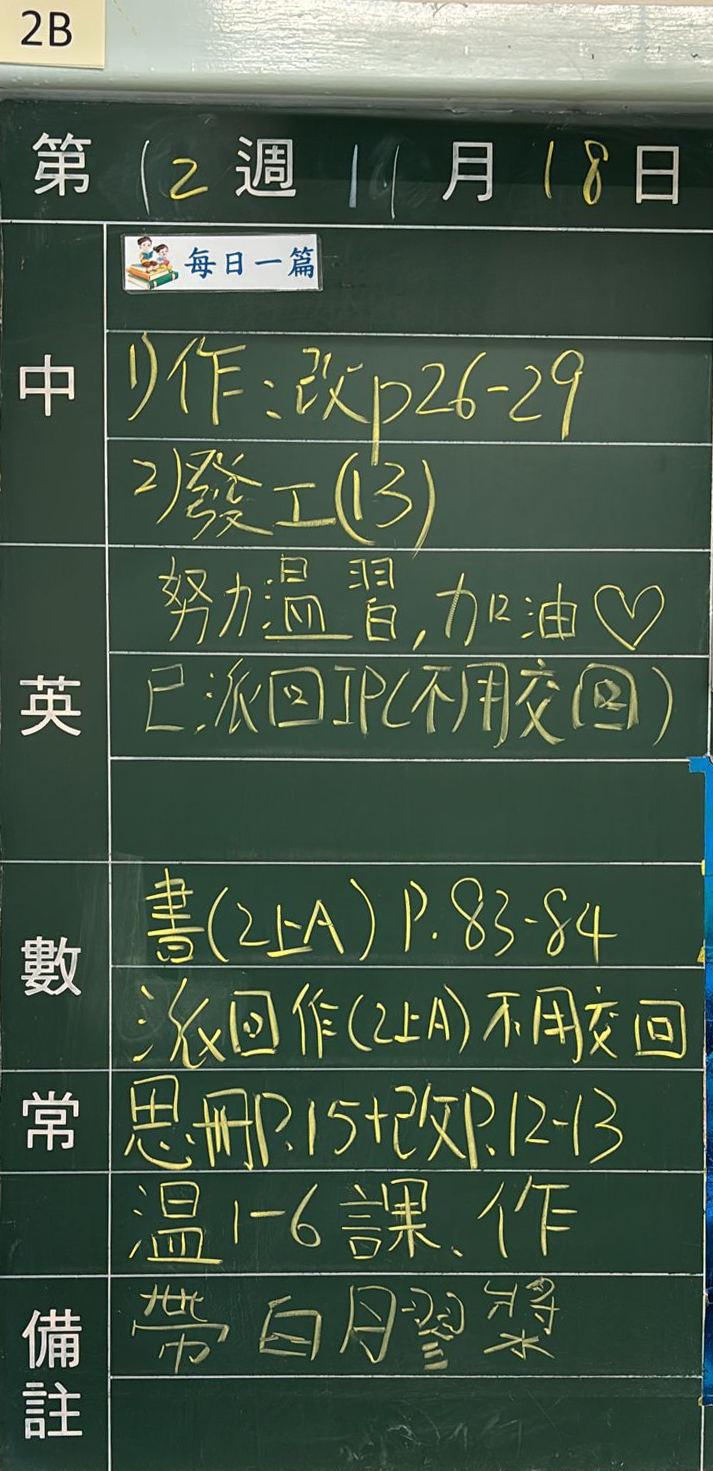 2B
第12週11月18日
每日一篇
中
1)作:改p26-29
2)發工(13)
英
努力溫習,加油♡
已派回IP(不用交回)
數
書(2上A) P.83-84
派回作(2上A)不用交回
常
思冊P.15+改P.12-13
溫1-6課、作
備註
帶白膠漿